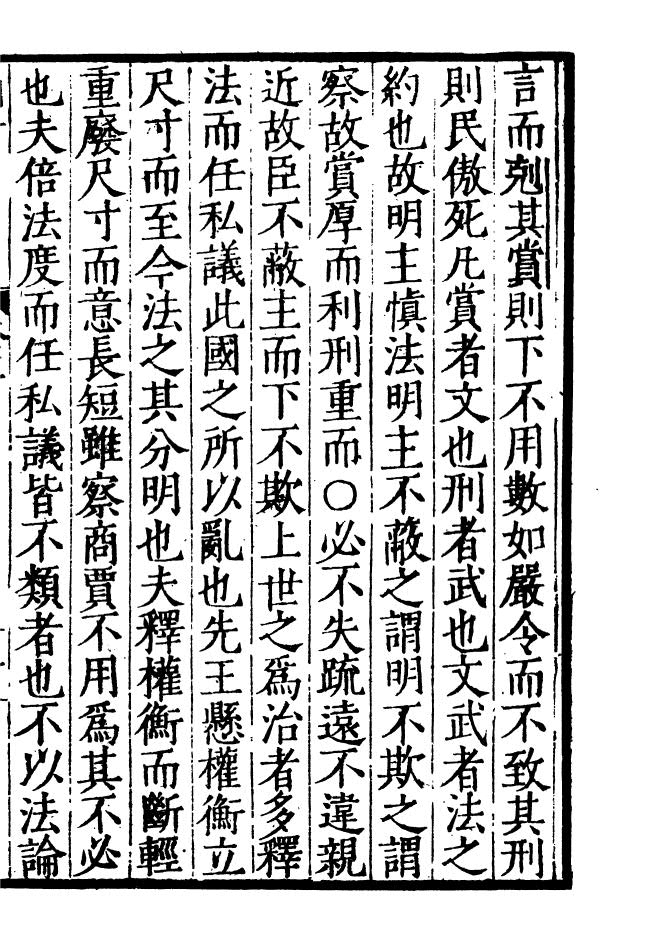 言而剋其賞則下不用數如嚴令而不致其刑
則民傲死凡賞者文也刑者武也文武者法之
約也故明主慎法明主不蔽之謂明不欺之謂
察故賞厚而利刑重而○必不失疏遠不違親
近故臣不蔽主而下不欺上世之為治者多釋
法而任私議此國之所以亂也先王懸權衡立
尺寸而至今法之其分明也夫釋權衡而斷輕
重廢尺寸而意長短雖察商賈不用為其不必
也夫倍法度而任私議皆不類者也不以法論